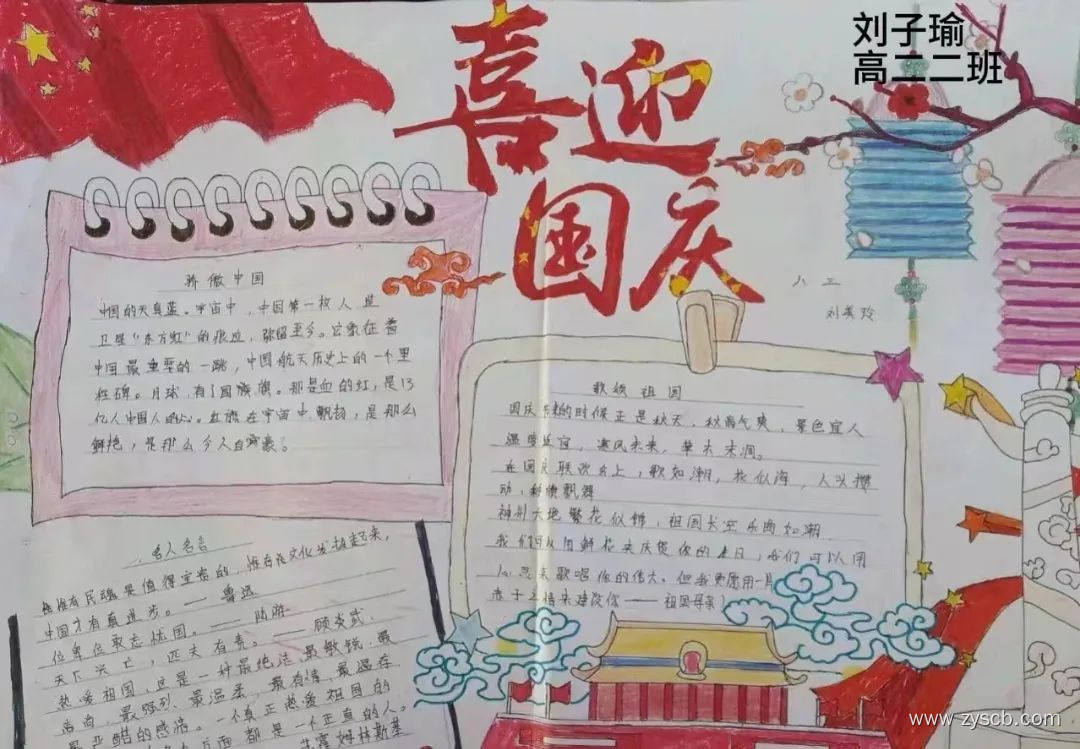 喜迎
国庆
刘子瑜
高二二班
骄傲中国
中国的天真蓝。宇宙中,中国第一枚人造
卫星"东方红"的痕迹,弥留至今。它象征着
中国最重要的一跳,中国航天历史上的一个里
程碑。月球,有了国旗旗。那是血的红,是13
亿人中国人的心。红旗在宇宙中飘扬,是那么
鲜艳,是那么令人自豪。
八三
刘美玲
歌颂祖国
国庆节来的时候正是秋天,秋高气爽,景色宜人
温度适宜,寒风未来,草木未凋。
在国庆联欢会上,歌如潮,花似海,人头攒
动,彩旗飘舞
神州大地繁花似锦,祖国长空乐曲如潮
我们可以用鲜花来庆贺你的生日,我们可以用
来歌唱你的伟大。但我更愿用一
赤子之情来建设你——祖国母亲!
名人名言
惟有民魂是值得宝贵的,惟有他发扬起来,
中国才有真进步。——鲁迅
位卑位敢忘忧国。——陆游
天下兴亡,匹夫有责。——顾炎武
热爱祖国,这是一种最纯洁、最敏锐、最
高尚、最强烈、最温柔、最有情、最温存、
最严酷的感情。一个真正热爱祖国的
方面都是一个正直的人。
苏霍姆林斯基
www.zyscb.com